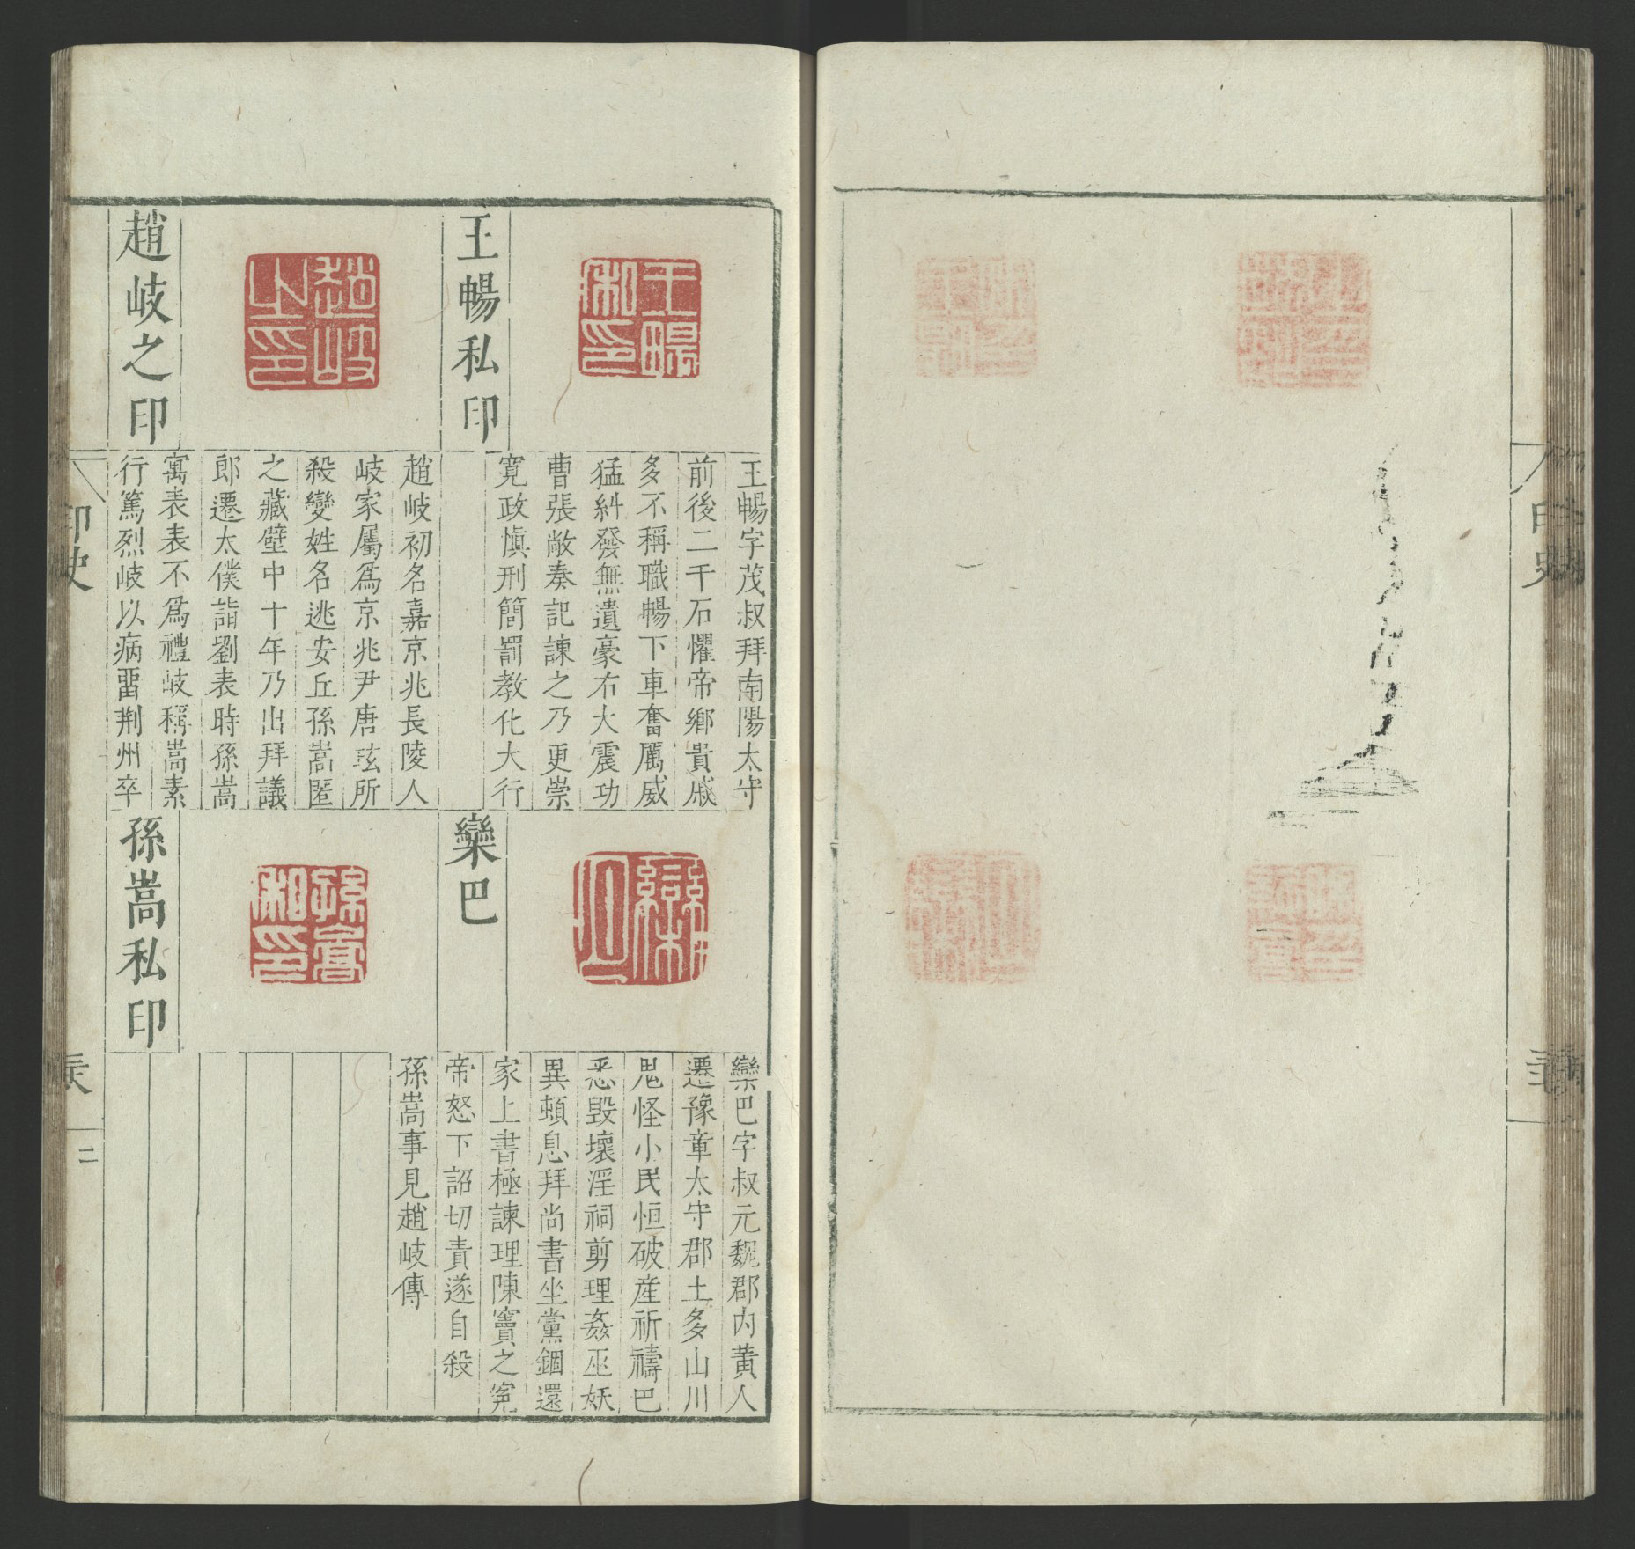 王暢私印
王暢私印
王暢字茂叔拜南陽太守
前後二千石懼帝鄉貴戚
多不稱職暢下車奮厲威
猛糾發無遺豪右大震功
曹張敞奏記諫之乃更崇
寬政慎刑簡罰教化大行
趙岐之印
趙岐之印
趙岐初名嘉京兆長陵人
岐家屬爲京兆尹唐玹所
殺變姓名逃安丘孫嵩匿
之藏壁中十年乃出拜議
郎遷太僕詣劉表時孫嵩
寓表表不爲禮岐稱嵩素
行篤烈岐以病畱荆州卒
欒巴
欒巴
欒巴字叔元魏郡内黃人
遷豫章太守郡土多山川
鬼怪小民恒破產祈禱巴
悉毀壞淫祠剪理姦巫妖
異頓息拜尚書坐黨錮還
家上書極諫理陳竇之寃
帝怒下詔切責遂自殺
孫嵩私印
孫嵩私印
孫嵩事見趙岐傳
印史
二